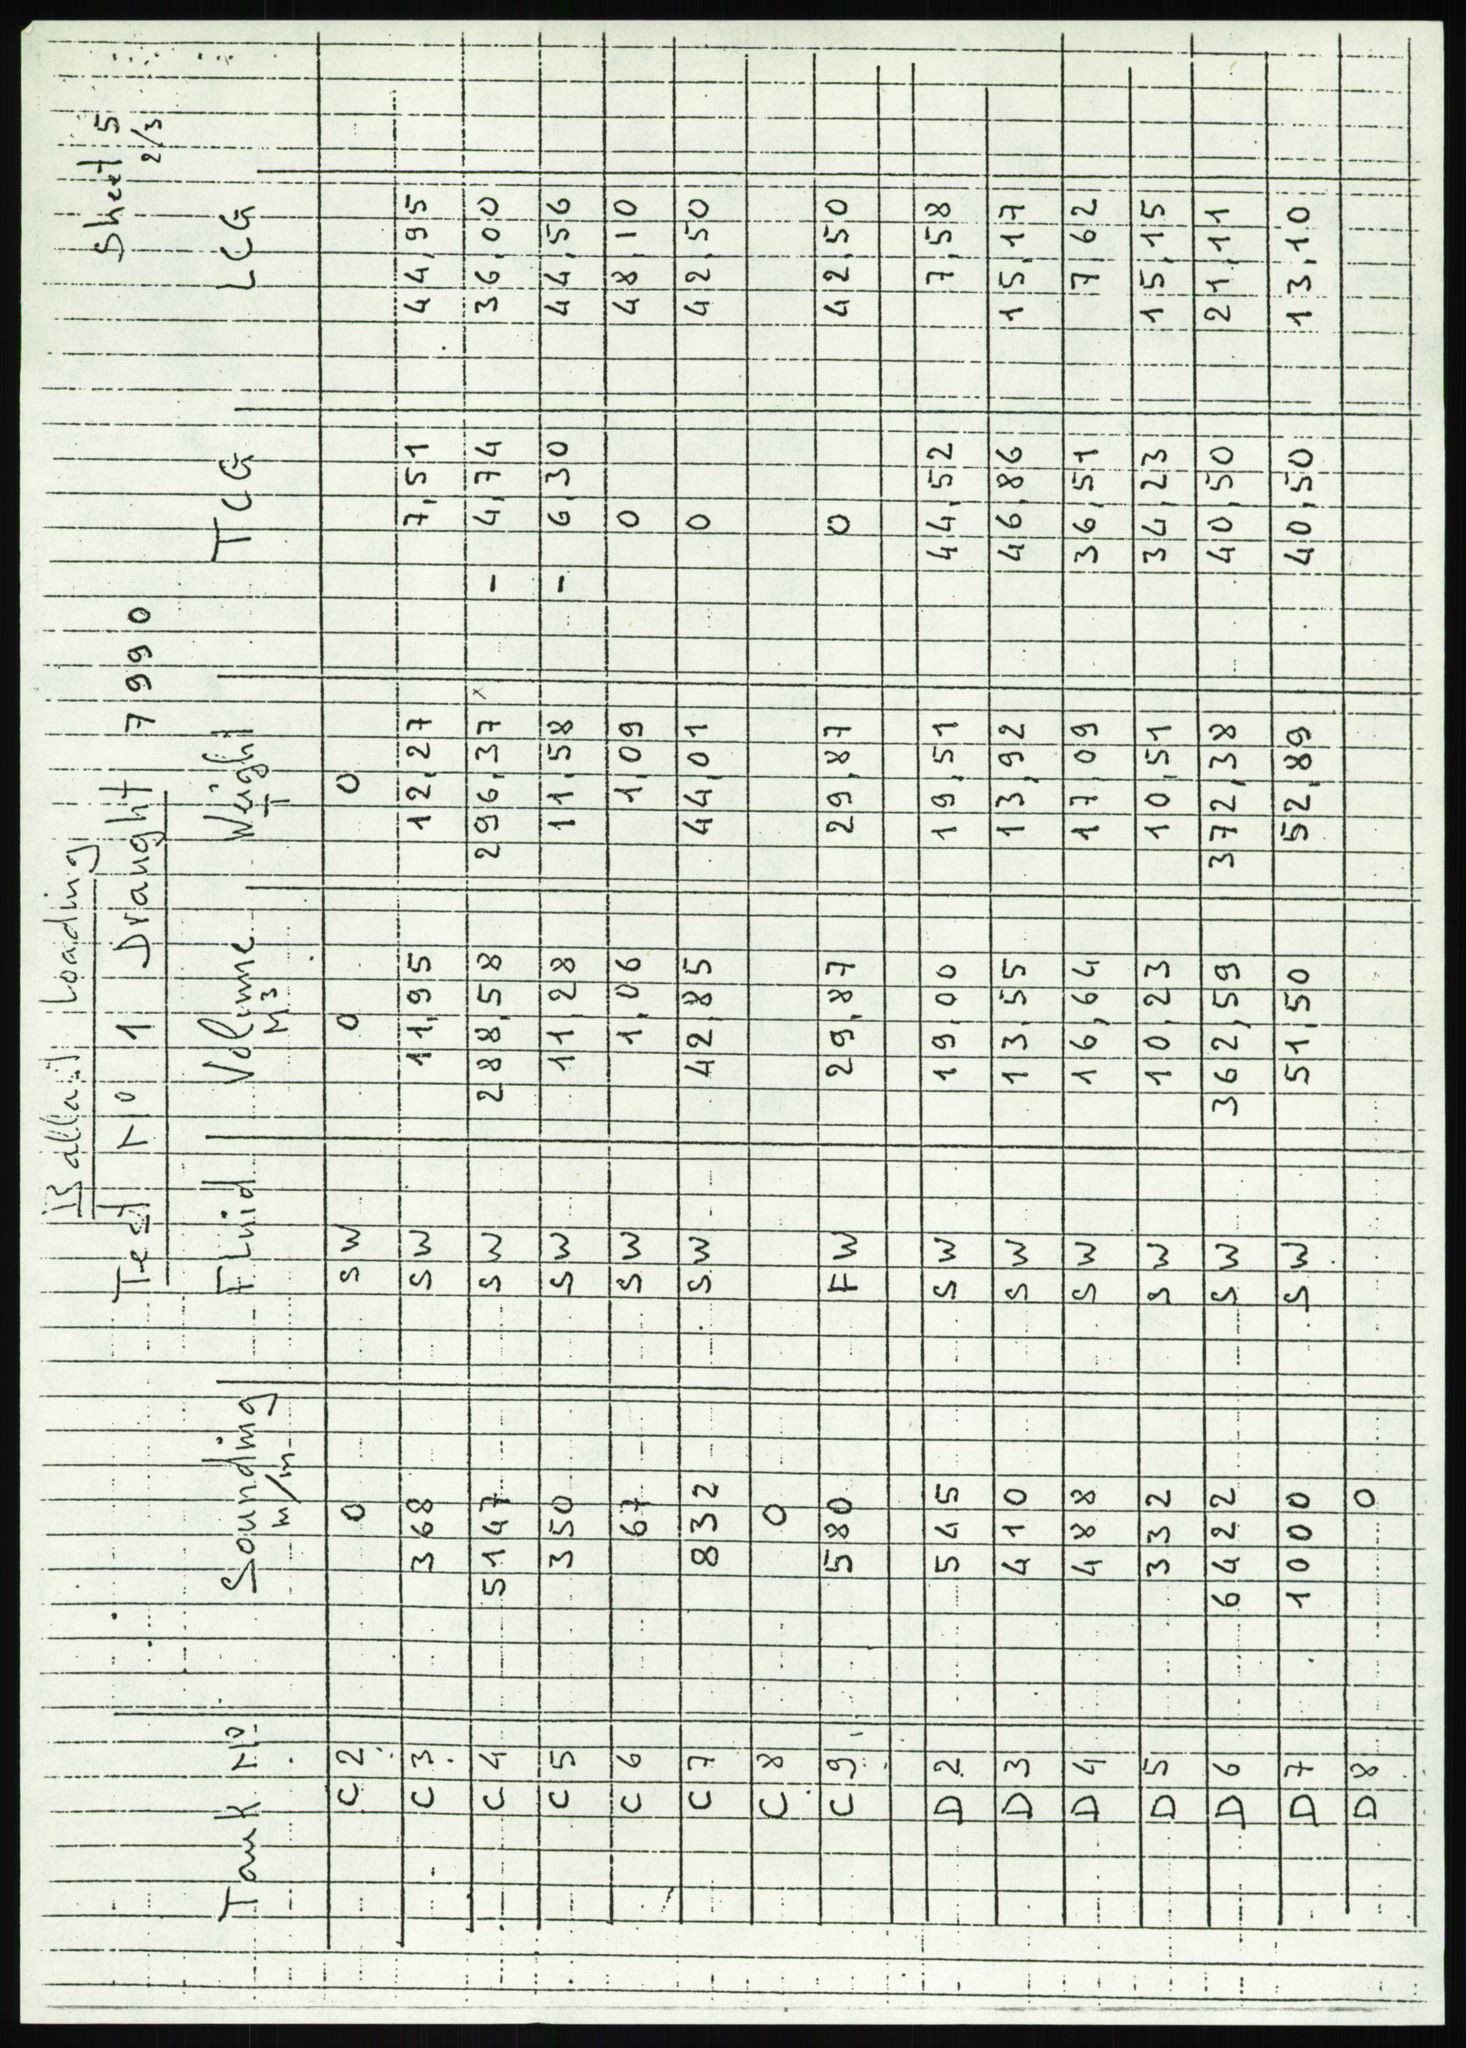 Ballast Loading
Sheet 5
2/3
Test No 1 Draught 7990
Tank No Sounding Fluid Volume Weight TCG LCG
m/m M3 T
C2 0 SW 0 0
C3 368 SW 11,95 12,27 7,51 44,95
C4 5147 SW 288,58 296,37 - 4,74 36,00
C5 350 SW 11,28 11,58 - 6,30 44,56
C6 67 SW 1,06 1,09 0 48,10
C7 832 SW 42,85 44,01 0 42,50
C8 0
C9 580 FW 29,87 29,87 0 42,50
D2 545 SW 19,00 19,51 44,52 7,58
D3 410 SW 13,55 13,92 46,86 15,17
D4 488 SW 16,64 17,09 36,51 7,62
D5 332 SW 10,23 10,51 34,23 15,15
D6 6422 SW 362,59 372,38 40,50 21,11
D7 1000 SW 51,50 52,89 40,50 13,10
D8 0